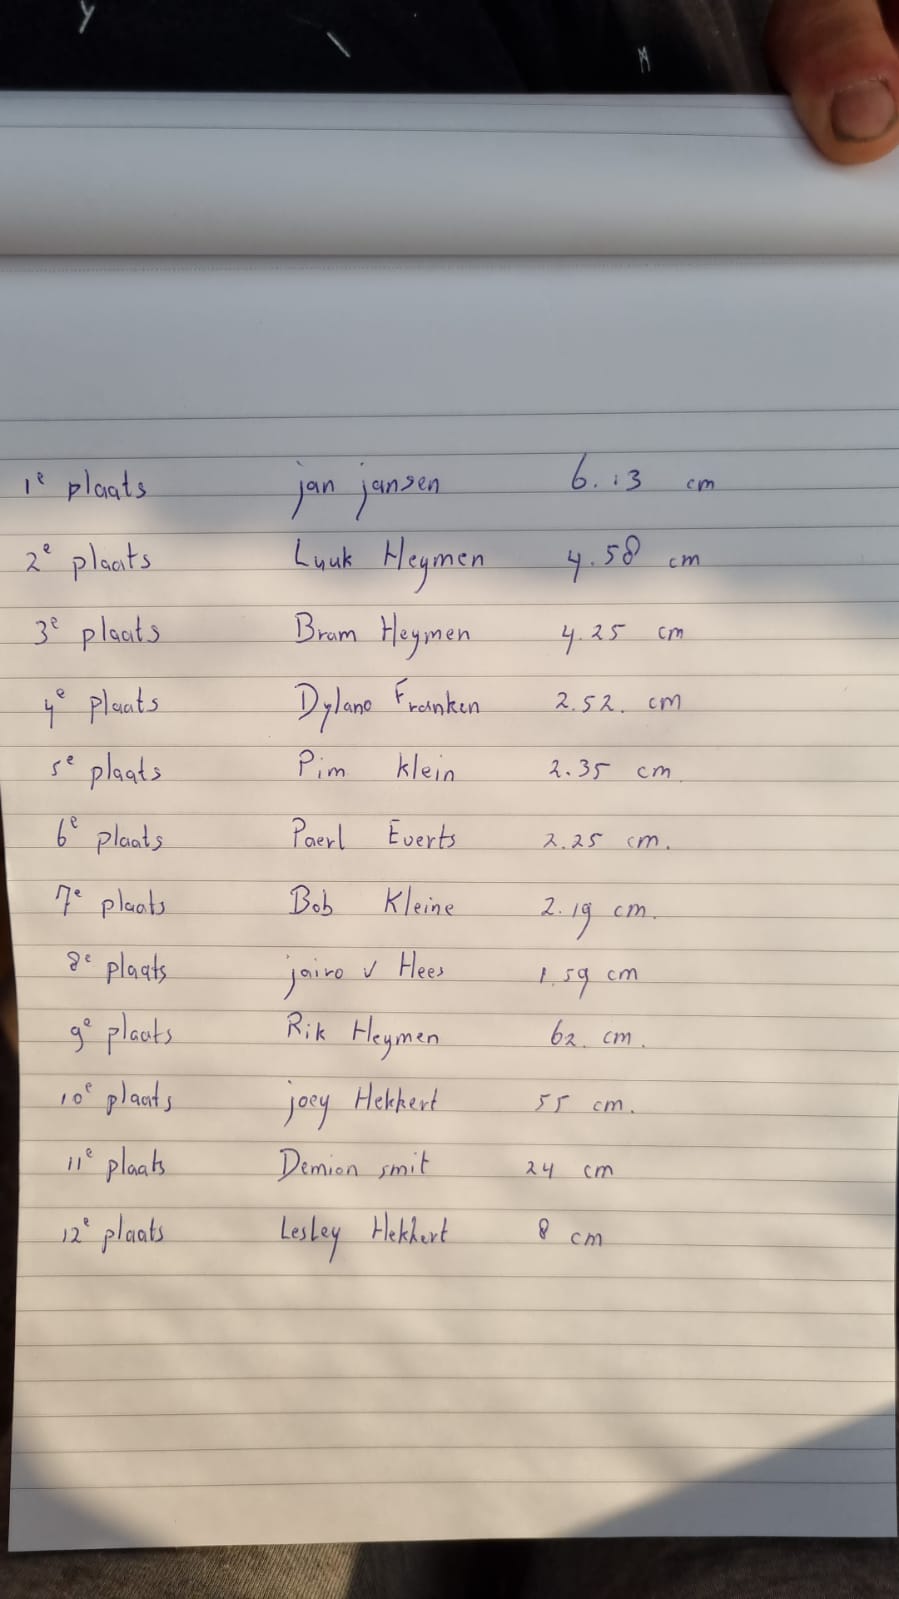 1e plaats jan jansen 6.13 cm
2e plaats Luuk Heymen 4.58 cm
3e plaats Bram Heymen 4.25 cm
4e plaats Dylano Franken 2.52. cm
5e plaats Pim klein 2.35 cm
6e plaats Paerl Everts 2.25 cm.
7e plaats Bob Kleine 2.19 cm.
8e plaats jairo v Hees 1.59 cm
9e plaats Rik Heymen 62. cm.
10e plaats joey Hekkert 55 cm.
11e plaats Demion smit 24 cm
12e plaats Lesley Hekkert 8 cm